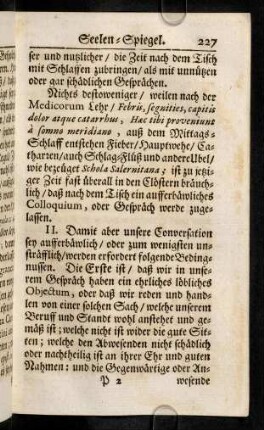 Seelen-Spiegel. 227
ser und nutzlicher / die Zeit nach dem Tisch
mit Schlaffen zubringen / als mit unnützen
oder gar schädlichen Gesprächen.
Nichts destoweniger / weilen nach der
Medicorum Lehr / Febris, segnities, capitis
dolor atque catarrhus, Hæc tibi proveniunt
à somno meridiano, auß dem Mittags-
Schlaff entstehen Fieber / Hauptwehe / Ca-
tharren / auch Schlag-Flüß und andere Ubel /
wie bezeüget Schola Salernitana; ist zu jetzi-
ger Zeit fast überall in den Clöstern bräuch-
lich / daß nach dem Tisch ein aufferbäwliches
Colloquium, oder Gespräch werde zuge-
lassen.
II. Damit aber unsere Conversation
sey aufferbäwlich / oder zum wenigsten un-
sträfflich / werden erfordert folgende Beding-
nussen. Die Erste ist / daß wir in unse-
rem Gespräch haben ein ehrliches löbliches
Objectum, oder daß wir reden und hand-
len von einer solchen Sach / welche unserem
Beruff und Stande wohl anstehet und ge-
mäß ist; welche nicht ist wider die gute Sit-
ten; welche den Abwesenden nicht schädlich
oder nachtheilig ist an ihrer Ehr und guten
Nahmen; und die Gegenwärtige oder An-
P 2 wesende